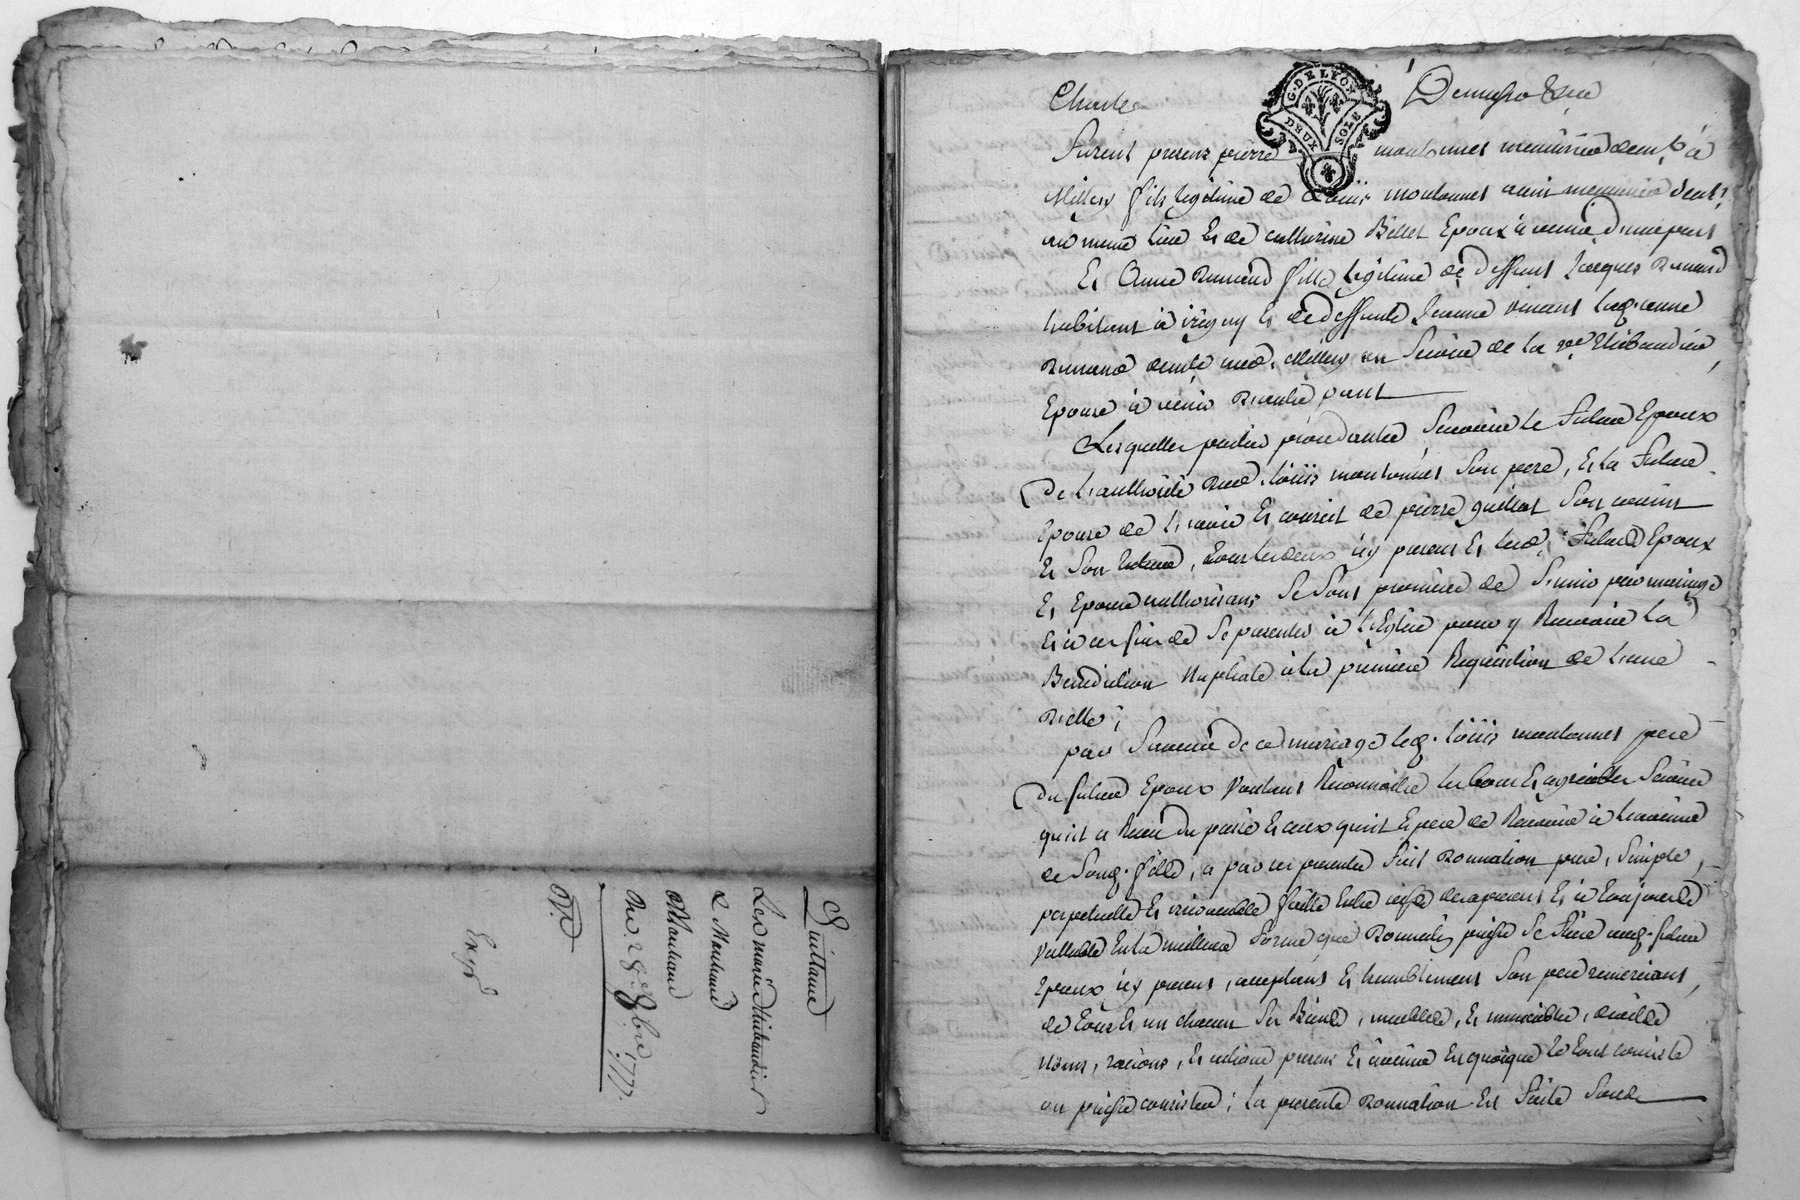 Quittance
Les mariés Thibaudier
& Monhaud
Du. 28e 8bre 1777.
Enrgé
Charles
G. DE LYON
DEUX SOLS
Furent presens pierre montonnet menuisier demt à
Millery fils legitime de Loüis montonnet aussi menuisier demt
au meme lieu Et de catherine Billet Epoux à venir d'une part
Et Anne Renard fille legitime de deffunt Jacques Renard
habitant à irigny Et de deffunte Jeanne vincent lad. anne
Renard demte aud. Millery au Service de la ve Thibaudier
Epouse à venir d'autre part
Lesquelles parties procedantes Scavoir le Futur Epoux
De L'authorité dud. Loüis montonnet Son pere, Et la Future
Epouse de L'avis Et conseil de pierre Son cousin
Et Son tuteur, tous les deux icy presens Et lesd. Futurs Epoux
Et Epouse authorisans Se Sont promis de S'unir par mariage
Et à ces fins de Se presenter à L'Eglise pour y Recevoir La
Benediction Nuptiale à la premiere Requisition de L'une
D'elles;
par Faveur de ce mariage led. Loüis montonnet pere
Du futur Epoux voulant Reconnoître les bons Et agreables Services
qu'il a Reçu du passé Et ceux qu'il Espere de Recevoir à L'avenir
de Sond. fils, a par ces presentes Fait Donnation pure, Simple,
perpetuelle Et irrevocable faitte Entre vifs des apresent Et à toujours
vallable En la meilleure Forme que Donnation puisse Se Faire aud. futur
Epoux icy present, acceptant Et humblement Son pere remerciant,
de tous Et un chacun Ses Biens, meubles, Et immeubles, droits
Noms, raisons, Et actions presens Et à venir En quoi que le tout consiste
ou puisse consister; La presente Donnation Est Faite Sous